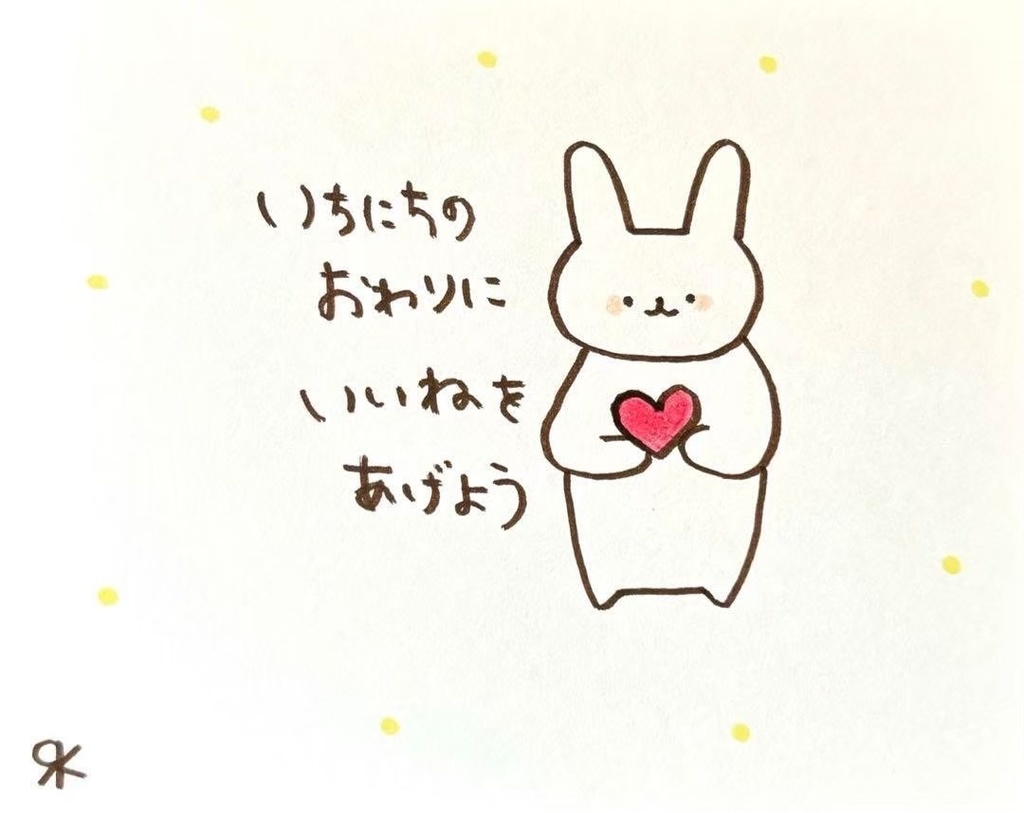 いちにちの
おわりに
いいねを
あげよう